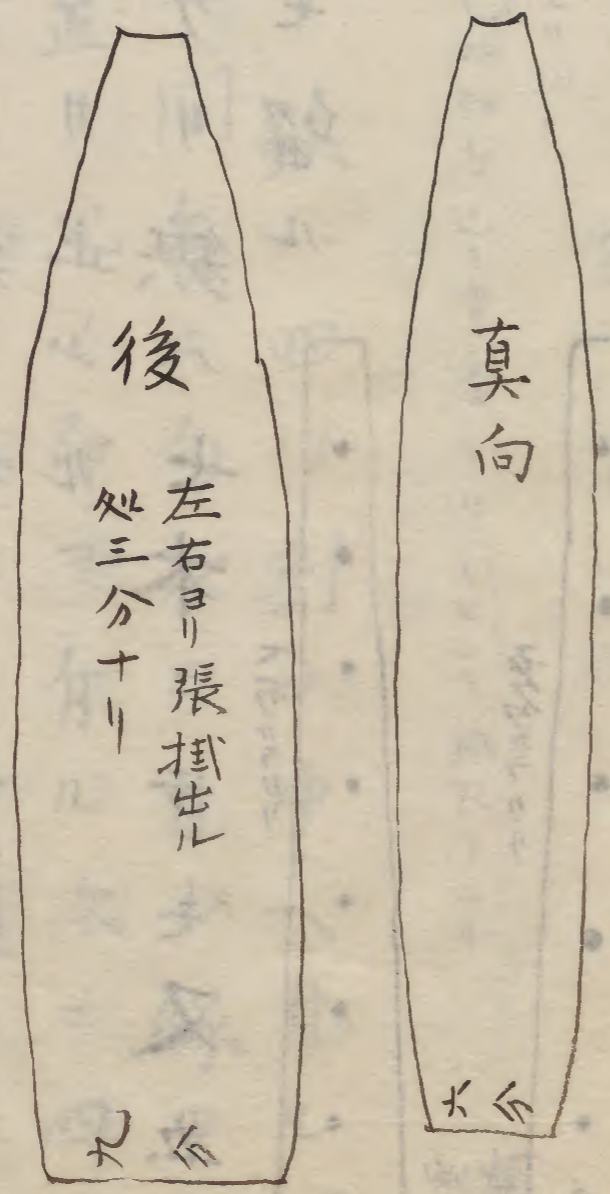 真向
六分
後
左右ヨリ張掛出ル
処三分ナリ
九分